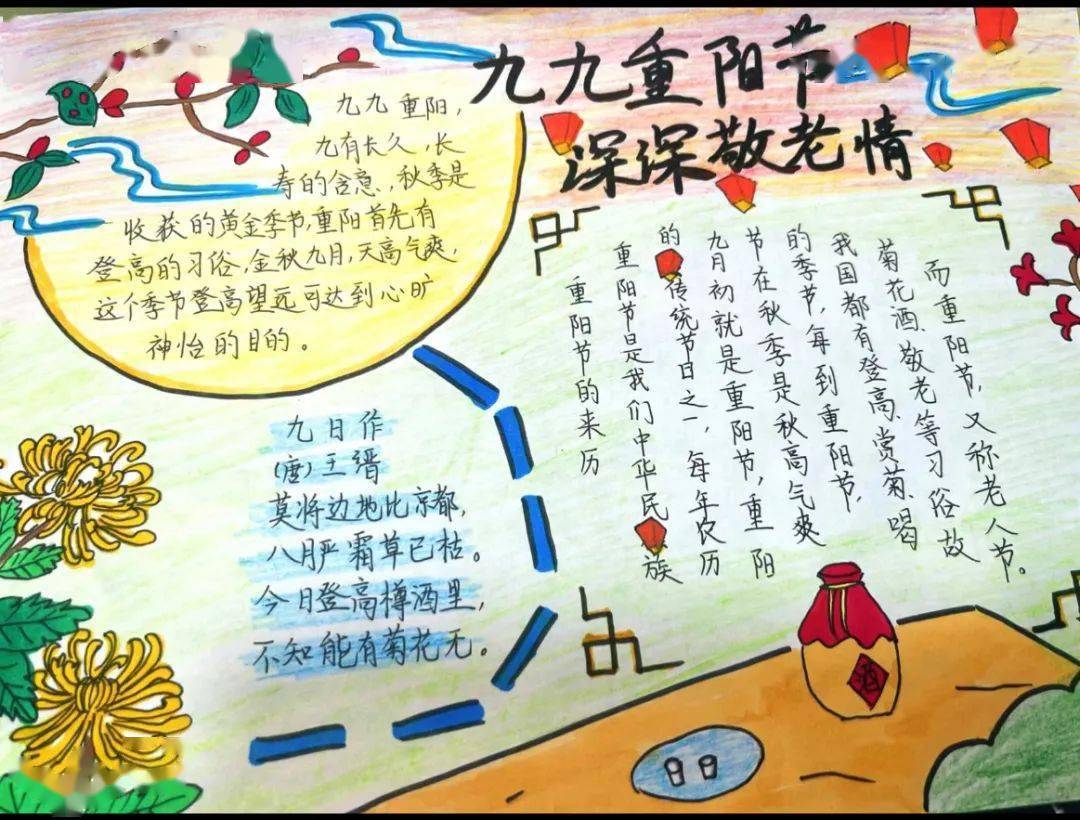 九九重阳节
深深敬老情
九九重阳，
九有长久，长
寿的含意，秋季是
收获的黄金季节，重阳首先有
登高的习俗，金秋九月，天高气爽，
这个季节登高望远可达到心旷
神怡的目的。
九日作
(唐)王缙
莫将边地比京都，
八月严霜草已枯。
今日登高樽酒里，
不知能有菊花无。
重阳节的来历
重阳节是我们中华民族
的传统节日之一，每年农历
九月初就是重阳节，重阳
节在秋季是秋高气爽
的季节，每到重阳节，
我国都有登高、赏菊、喝
菊花酒、敬老等习俗故
而重阳节，又称老人节。
酒